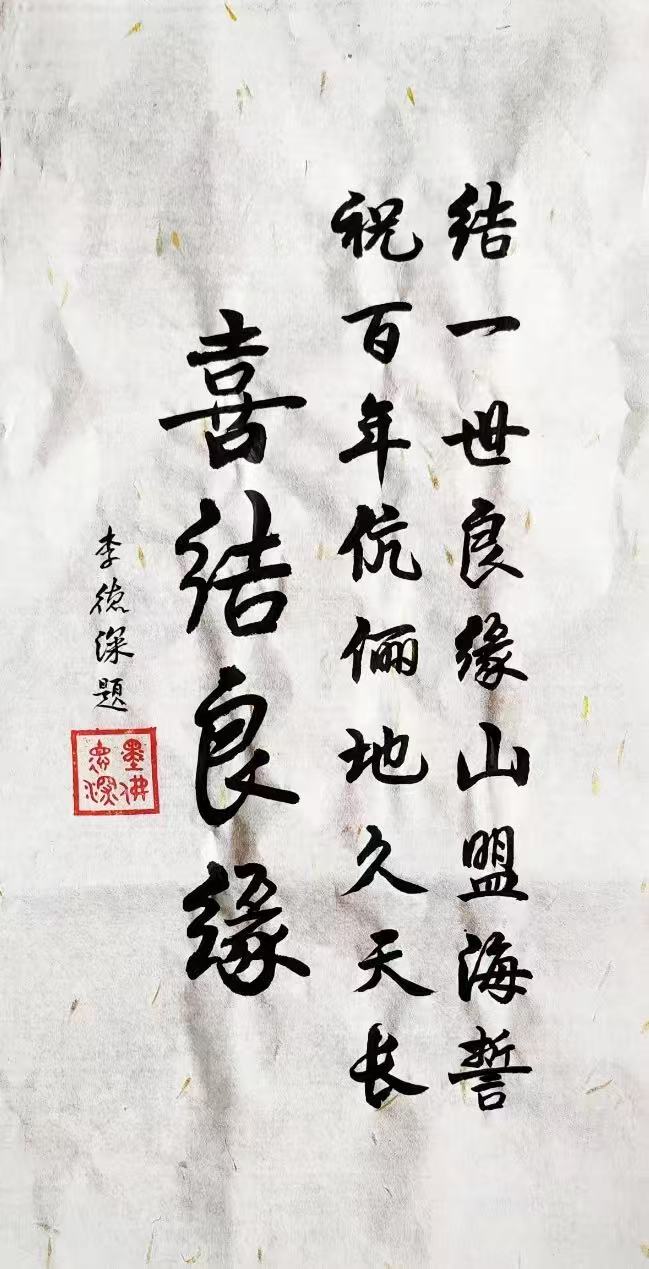 结一世良缘山盟海誓
祝百年伉俪地久天长
喜结良缘
李德深题
墨佛
德深